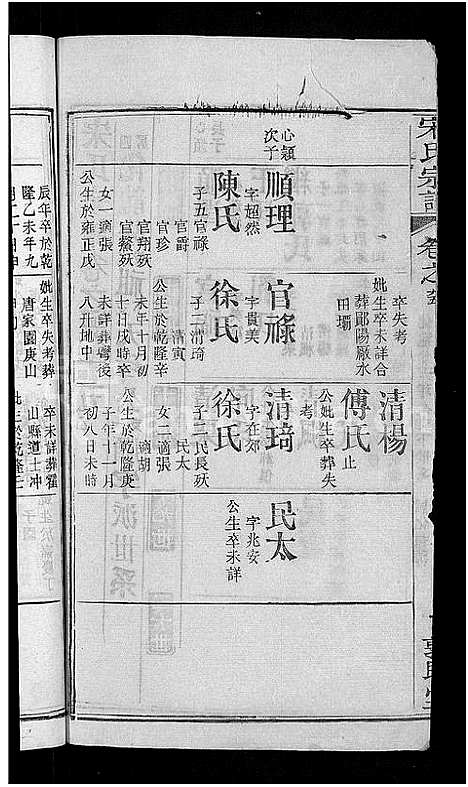 宋氏宗譜
卷之
心穎次子
順理
字超然
陳氏
子五官祿
官爵
官珍
官翔殀
官鰲殀
女一適張
公生於雍正戊
卒失考
妣生卒未詳合
葬鄖陽厰水
田壩
官祿
字貴美
徐氏
子二清琦
清寅
公生於乾隆辛
未年十月初
十日戌時卒
未詳葬彎後
八升地中
清楊
傅氏
止
公妣生卒葬失
考
清琦
字在郊
徐氏
子二民長殀
民太
女二適張
適胡
公生於乾隆庚
子年十一月
初八日未時
民太
字兆安
公生卒未詳
辰年卒於乾
隆乙未年九
妣生卒失考葬
唐家園庚山
卒未詳葬霍
山縣道士冲
妣生於乾隆